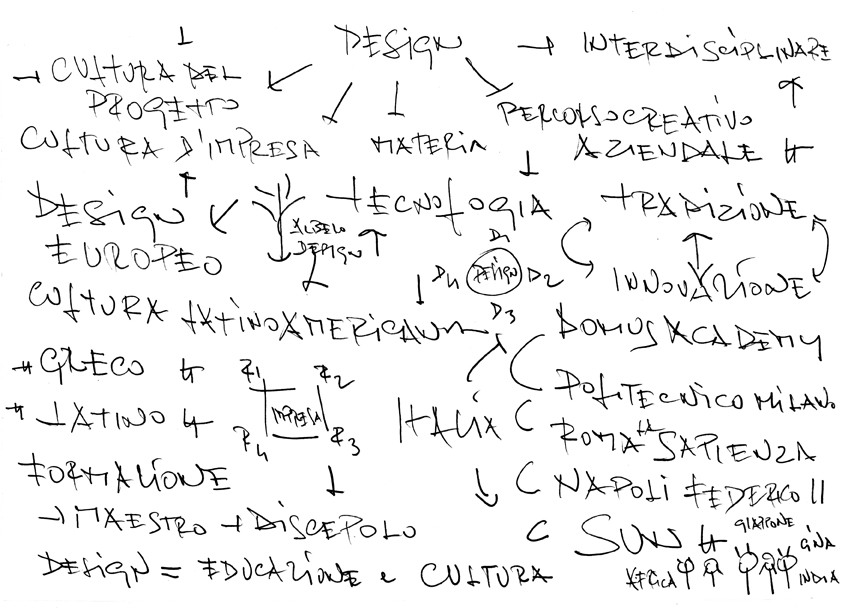 DESIGN → INTERDISCIPLINARE
→ CULTURA DEL
PROGETTO
PERCORSO CREATIVO
AZIENDALE
CULTURA D'IMPRESA
MATERIA
DESIGN
EUROPEO
ALBERO
DESIGN
TECNOLOGIA
TRADIZIONE
D1
D4 DESIGN D2
D3
INNOVAZIONE
CULTURA LATINOAMERICANA
DOMUS ACADEMY
GRECO
R1 R2
IMPRESA
R4 R3
LATINO
ITALIA
POLITECNICO MILANO
ROMA LA SAPIENZA
FORMAZIONE
NAPOLI FEDERICO II
→ MAESTRO → DISCEPOLO
SUN
GIAPPONE
CINA
AFRICA
INDIA
DESIGN = EDUCAZIONE e CULTURA